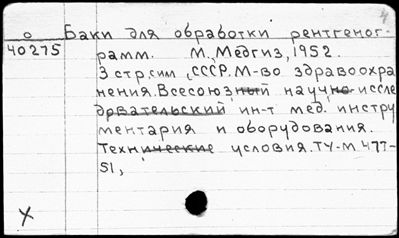 4
о Баки для обработки рентгеног-
40275 рамм. М., Медгиз, 1952.
3 стр. сил (СССР. М-во здравоохра
нения. Всесоюзный научно-иссле
довательский ин-т мед. инстру
ментария и оборудования.
Технические условия. ТУ-М 477-
51,
X